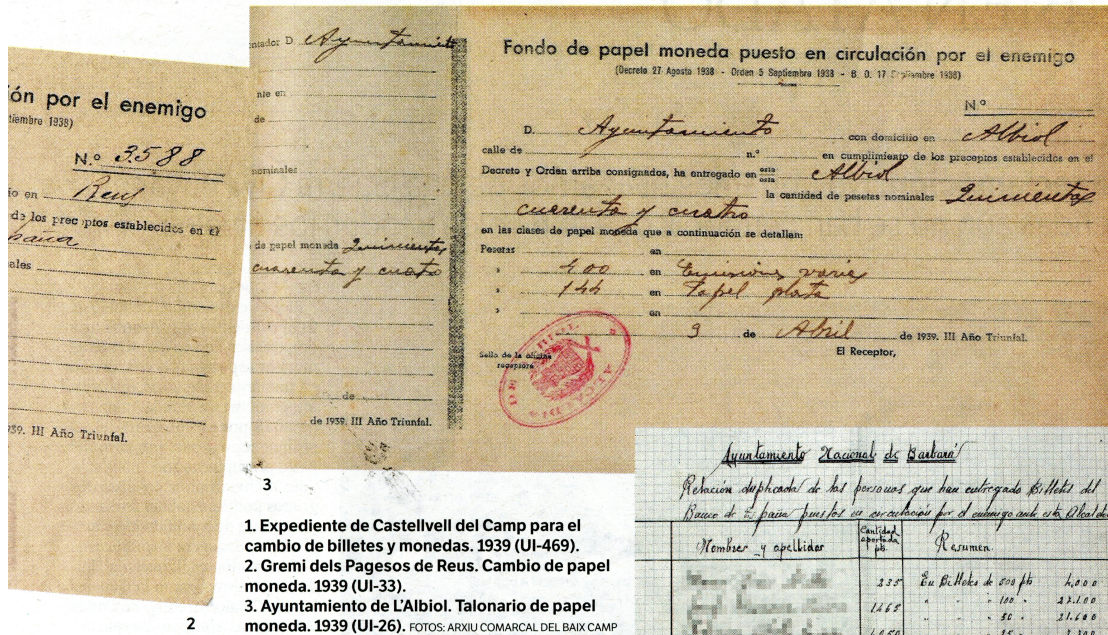 ón por el enemigo
tiembre 1938)
N.º 3588
io en Reus
de los preceptos establecidos en el
paña
ales
939. III Año Triunfal.
2
ntador D. Ayuntamiento
nte en
de
nominales
de papel moneda Quinientas
cuarenta y cuatro
de
de 1939. III Año Triunfal.
3
Fondo de papel moneda puesto en circulación por el enemigo
(Decreto 27 Agosto 1938 - Orden 5 Septiembre 1938 - B. O. 17 Septiembre 1938)
N.º
D. Ayuntamiento con domicilio en Albiol
calle de n.º en cumplimiento de los preceptos establecidos en el
Decreto y Orden arriba consignados, ha entregado en Albiol
la cantidad de pesetas nominales Quinientas
cuarenta y cuatro
en las clases de papel moneda que a continuación se detallan:
Pesetas en
" 400 en Emisiones varias
" 144 en Papel plata
" en
9 de Abril de 1939. III Año Triunfal.
El Receptor,
Sello de la oficina
receptora
ALCALDIA DE ALBIOL
1. Expediente de Castellvell del Camp para el
cambio de billetes y monedas. 1939 (UI-469).
2. Gremi dels Pagesos de Reus. Cambio de papel
moneda. 1939 (UI-33).
3. Ayuntamiento de L'Albiol. Talonario de papel
moneda. 1939 (UI-26). FOTOS: ARXIU COMARCAL DEL BAIX CAMP
Ayuntamiento Nacional de Barbará
Relación duplicada de las personas que han entregado Billetes del
Banco de España puestos en circulación por el enemigo ante esta Alcaldía
Nombres y apellidos
Cantidad
aportada
pts.
Resumen.
235 En Billetes de 500 pts 4,000
1265 " " " 100 "
" " " 50 " 21.600
" 25 "